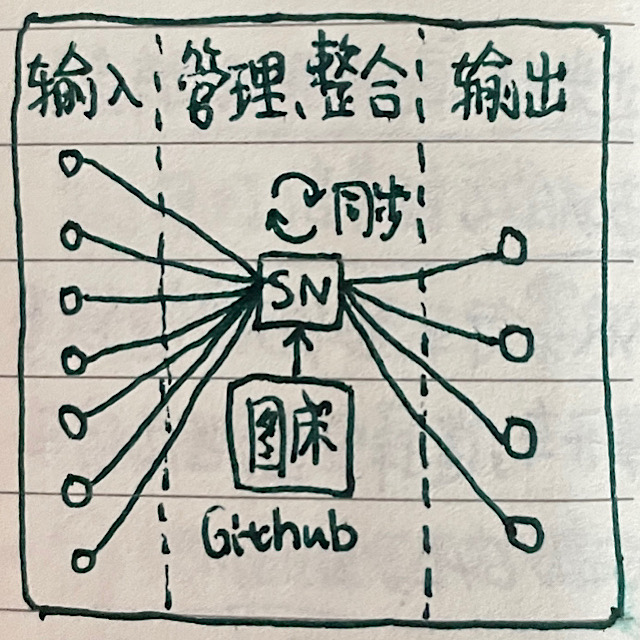 输入
管理、整合
输出
同步
SN
图床
Github